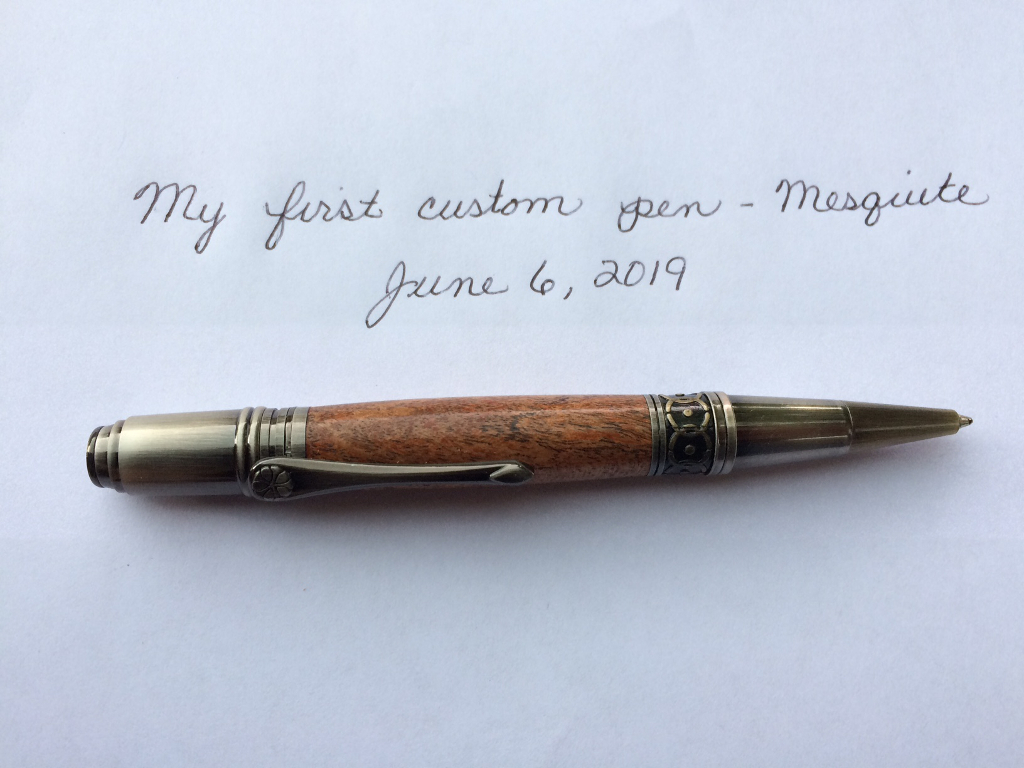 My first custom pen - Mesquite
June 6, 2019